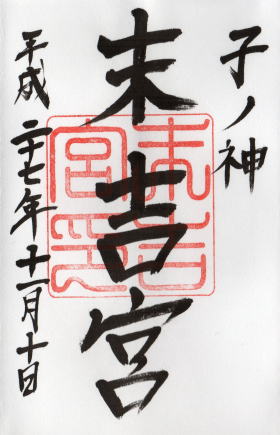 子ノ神
末吉宮
末吉宮印
平成二十七年十一月十日